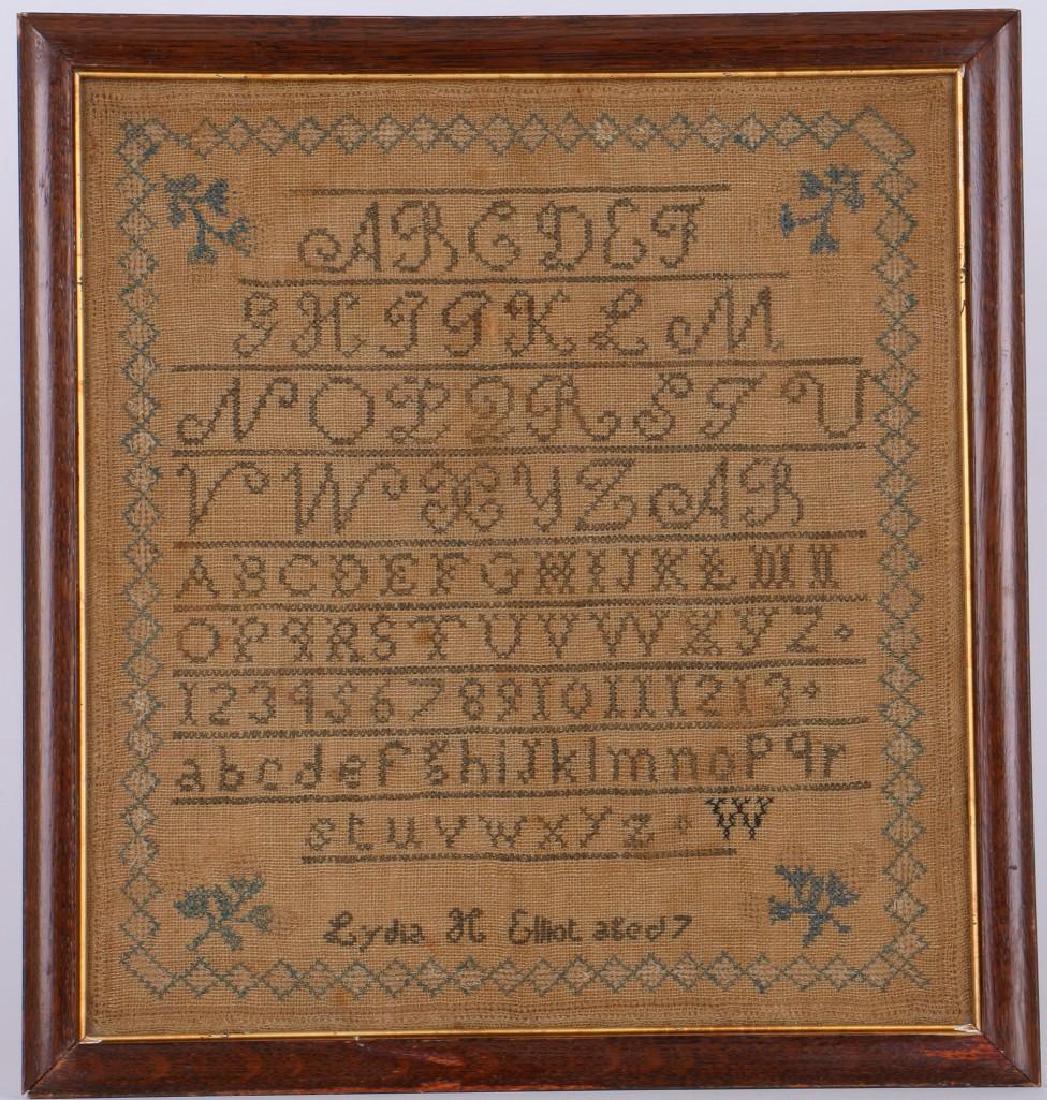 A B C D E F
G H I J K L M
N O P Q R S T U
V W X Y Z A B
A B C D E F G H I J K L M N
O P q R S T U V W X Y Z
1 2 3 4 5 6 7 8 9 10 11 12 13
a b c d e f g h i j k l m n o p q r
s t u v w x y z W
Lydia H Elliot aged 7